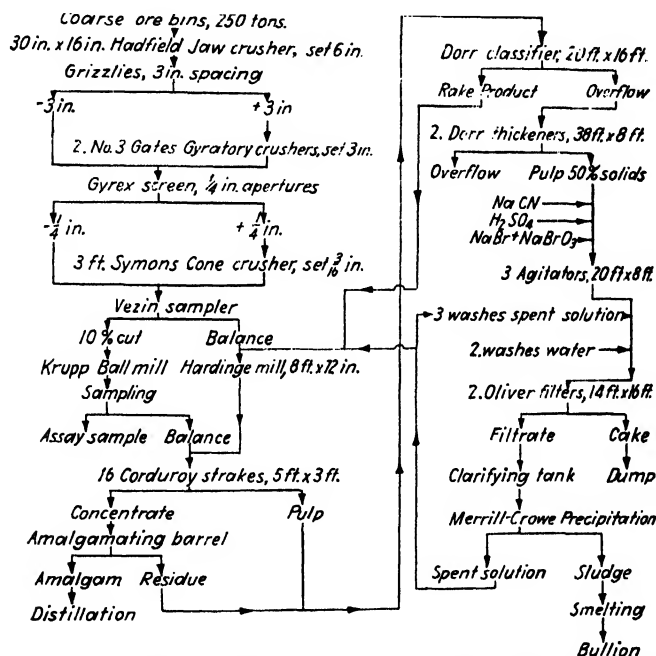 Coarse ore bins, 250 tons.
30 in. x 16 in. Hadfield Jaw crusher, set 6 in.
Grizzlies, 3 in. spacing
-3 in.
+3 in
2. No. 3 Gates Gyratory crushers, set 3 in.
Gyrex screen, 1/4 in. apertures
-1/4 in.
+1/4 in.
3 ft. Symons Cone crusher, set 3/16 in.
Vezin sampler
10% cut
Balance
Krupp Ball mill
Hardinge mill, 8 ft. x 12 in.
Sampling
Assay sample
Balance
16 Corduroy strakes, 5 ft. x 3 ft.
Concentrate
Pulp
Amalgamating barrel
Amalgam
Residue
Distillation
Dorr classifier, 20 ft. x 16 ft.
Rake Product
Overflow
2. Dorr thickeners, 38 ft. x 8 ft.
Overflow
Pulp 50% solids
NaCN
H2SO4
NaBr + NaBrO3
3 Agitators, 20 ft. x 8 ft.
3 washes spent solution
2. washes water
2. Oliver filters, 14 ft. x 16 ft.
Filtrate
Cake
Clarifying tank
Dump
Merrill-Crowe Precipitation
Spent solution
Sludge
Smelting
Bullion